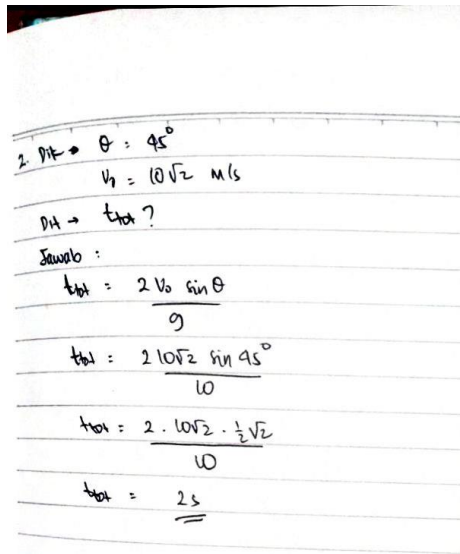 2. Dik → θ : 45°
V₀ = 10√2 m/s
Dit → t tot ?
Jawab :
t tot : 2 V₀ sin θ / g
t tot : 2 10√2 sin 45° / 10
t tot : 2 . 10√2 . ½√2 / 10
t tot : 2s